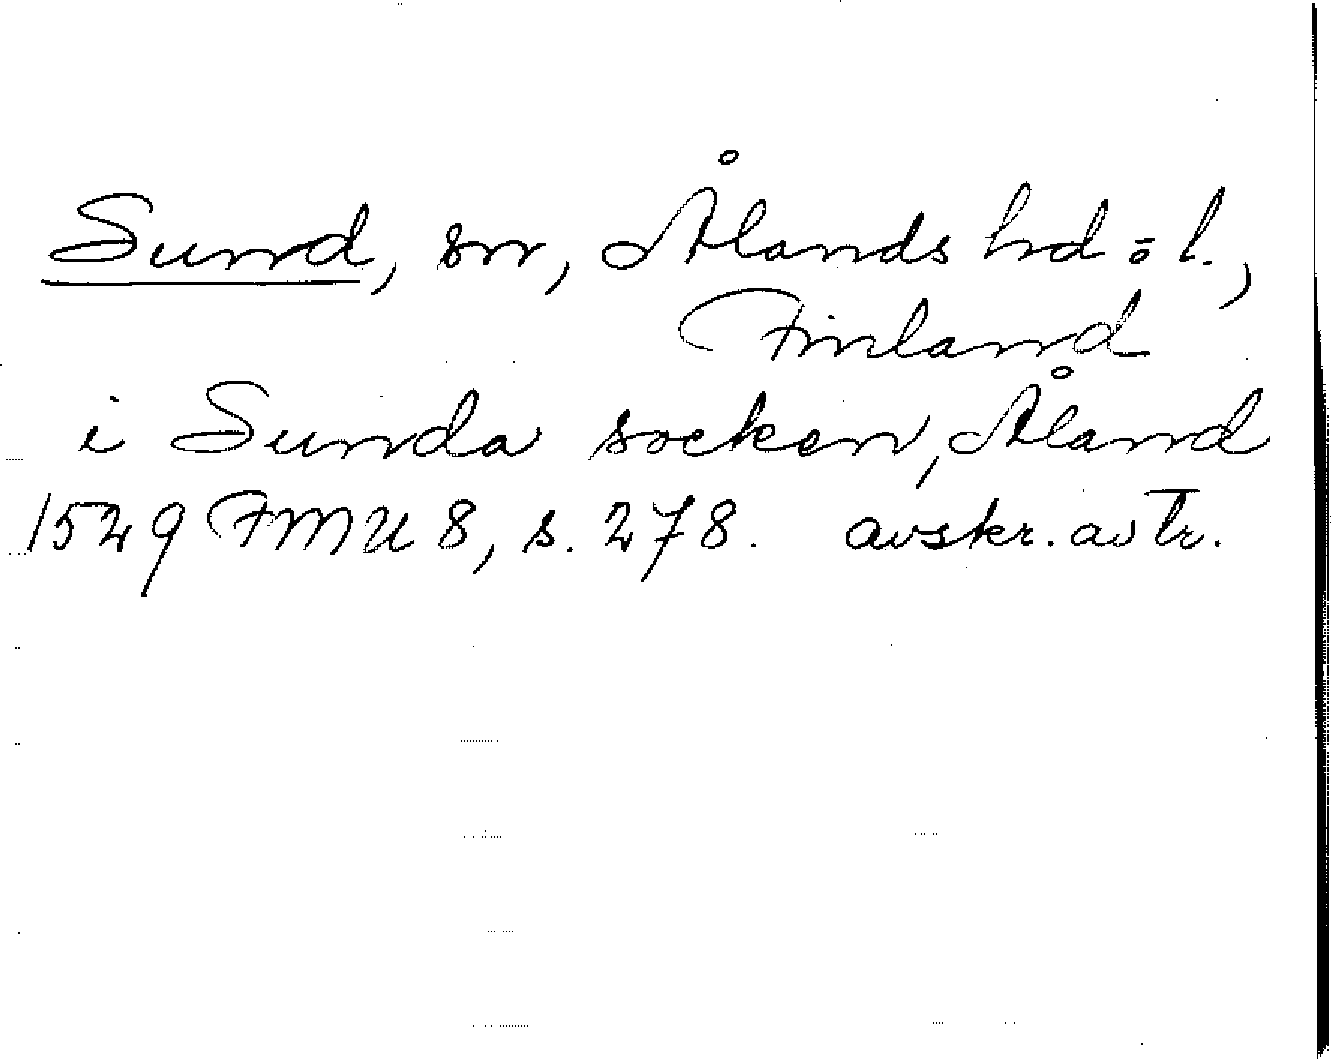 Sund, sn, Ålands hd o l.,
Finland
i Sunda socken, Åland
1529 FMU 8, s. 278. avskr. av tr.